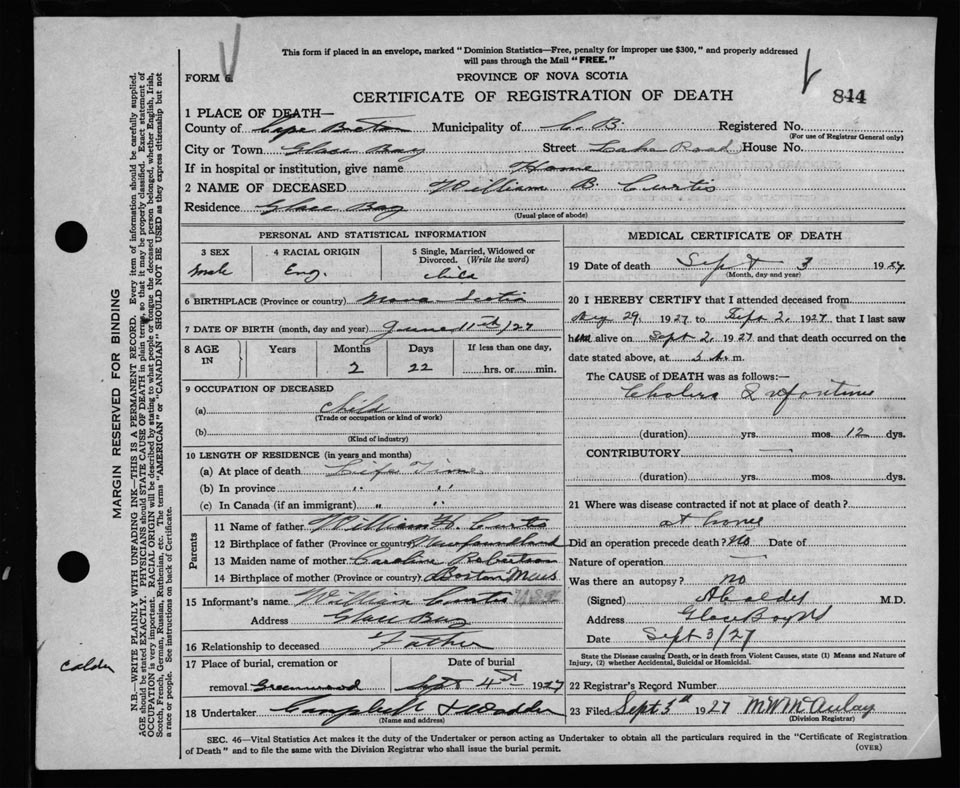 This form if placed in an envelope, marked "Dominion Statistics—Free, penalty for improper use $300," and properly addressed
will pass through the Mail "FREE."
FORM 6.
PROVINCE OF NOVA SCOTIA
CERTIFICATE OF REGISTRATION OF DEATH
844
1 PLACE OF DEATH—
County of Cape Breton Municipality of C.B. Registered No.
(For use of Registrar General only)
City or Town Glace Bay Street Lake Road House No.
If in hospital or institution, give name Home
2 NAME OF DECEASED William B. Curtis
Residence Glace Bay
(Usual place of abode)
PERSONAL AND STATISTICAL INFORMATION
3 SEX 4 RACIAL ORIGIN 5 Single, Married, Widowed or
Divorced. (Write the word)
male Eng.
6 BIRTHPLACE (Province or country) Nova Scotia
7 DATE OF BIRTH (month, day and year) June 11th/27
8 AGE IN Years Months Days If less than one day,
2 22 hrs. or min.
9 OCCUPATION OF DECEASED
(a) child
(Trade or occupation or kind of work)
(b)
(Kind of industry)
10 LENGTH OF RESIDENCE (in years and months)
(a) At place of death Life Time
(b) In province " "
(c) In Canada (if an immigrant) " "
Parents
11 Name of father William H. Curtis
12 Birthplace of father (Province or country) Newfoundland
13 Maiden name of mother Caroline Robertson
14 Birthplace of mother (Province or country) Boston Mass
15 Informant's name William Curtis
Address Glace Bay
16 Relationship to deceased Father
17 Place of burial, cremation or Date of burial
removal Greenwood Sept 4st 1927
18 Undertaker Campbell &
(Name and address)
MEDICAL CERTIFICATE OF DEATH
19 Date of death Sept 3 1927
(Month, day and year)
20 I HEREBY CERTIFY that I attended deceased from
Aug 29, 1927 to Sept 2, 1927, that I last saw
him alive on Sept 2, 1927 and that death occurred on the
date stated above, at 5 A. m.
The CAUSE of DEATH was as follows:—
Cholera Infantum
(duration) yrs. mos. 12 dys.
CONTRIBUTORY —
(duration) yrs. mos. dys.
21 Where was disease contracted if not at place of death?
at home
Did an operation precede death? No Date of
Nature of operation —
Was there an autopsy? no
(Signed) A Calder M.D.
Address Glace Bay NS
Date Sept 3/27
State the Disease causing Death, or in death from Violent Causes, state (1) Means and Nature of
Injury, (2) whether Accidental, Suicidal or Homicidal.
22 Registrar's Record Number
23 Filed Sept 3d 1927 M W McAulay
(Division Registrar)
SEC. 46—Vital Statistics Act makes it the duty of the Undertaker or person acting as Undertaker to obtain all the particulars required in the "Certificate of Registration
of Death" and to file the same with the Division Registrar who shall issue the burial permit.
(OVER)
MARGIN RESERVED FOR BINDING
N.B.—WRITE PLAINLY WITH UNFADING INK—THIS IS A PERMANENT RECORD. Every item of information should be carefully supplied.
AGE should be stated EXACTLY. PHYSICIANS should STATE CAUSE OF DEATH in plain terms, so that it may be properly classified. Exact statement of
OCCUPATION is very important. RACIAL ORIGIN will be described by stating to what people or tongue the deceased person belonged, whether English, Irish,
Scotch, French, German, Russian, Ruthenian, etc. The terms "AMERICAN" or "CANADIAN" SHOULD NOT BE USED as they express citizenship but not
a race or people. See instructions on back of Certificate.
Calder